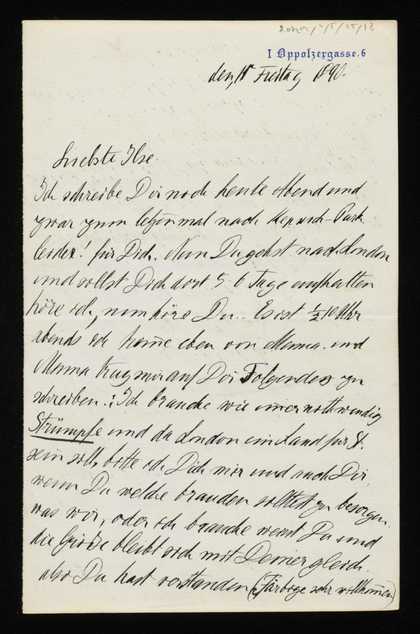 I Oppolzergasse. 6
den, 18 Freitag 1890.
Liebste Ilse
Ich schreibe Dir noch heute Abend und
zwar zum letzenmal nach
leider! für Dich. Nun Du gehst nach London
und sollst Dich dort 5 6 Tage aufhalten
höre ich, nun höre Du.. Es ist ½ 10 Uhr
abends ich komme eben von Mama und
Mama trug mir auf Dir Folgendes zu
schreiben.: Ich brauche wie immer nothwendig
Strümpfe und da London ein Land für St.
sein soll, bitte ich Dich mir und auch Dir,
wenn Du welche brauchen solltest zu besorgen,
was wir, oder ich brauche weist Du und
die Größe bleibt sich mit Deiner gleich.
also Du hast verstanden (färbige sehr willkommen)